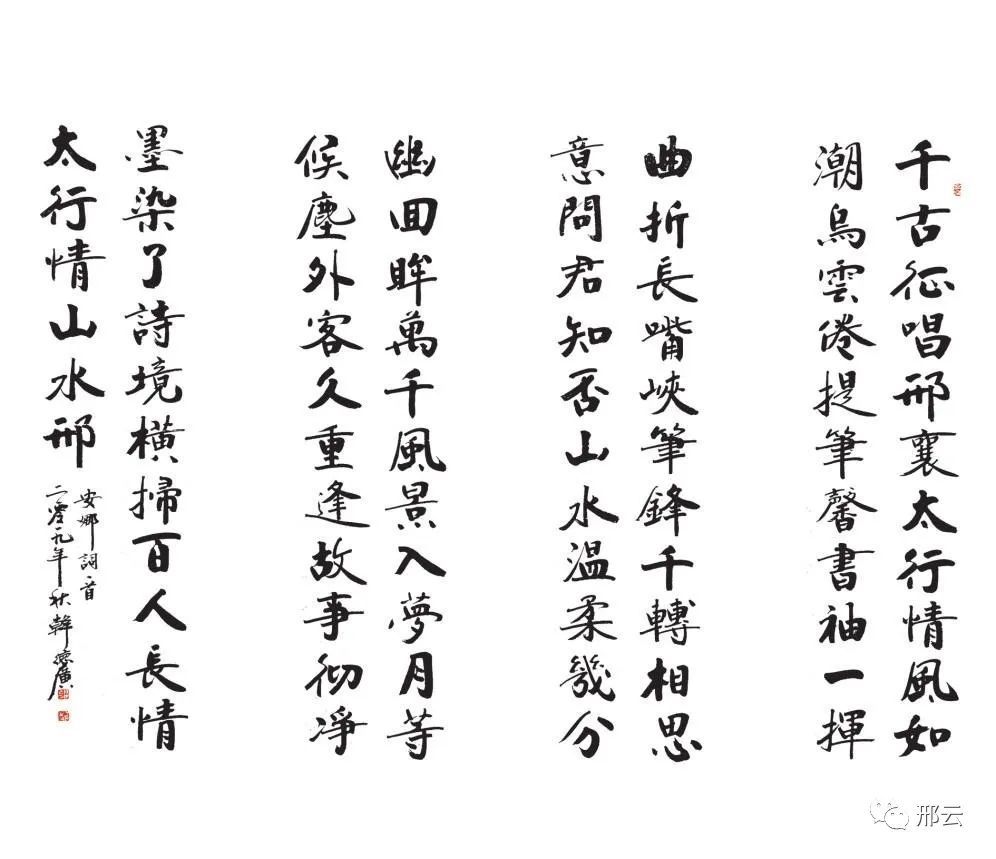 千古征唱邢襄太行情風如
潮烏雲倦提筆馨書袖一揮
曲折長嘴峽筆鋒千轉相思
意問君知否山水溫柔幾分
幽回眸萬千風景入夢月等
候塵外客久重逢故事彻凈
墨染了詩境橫掃百人長情
太行情山水邢
安娜詞一首
二零一九年秋韓廣
邢云